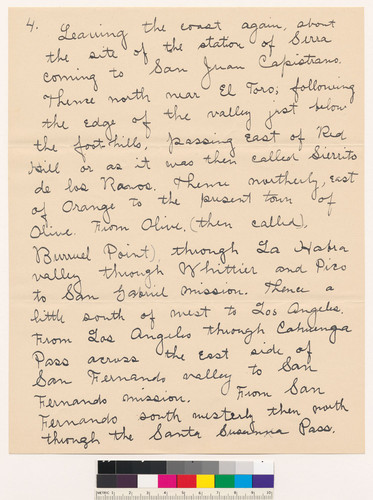 4. Leaving the coast again, about
the site of the station of Serra
coming to San Juan Capistrano.
Thence north near El Toro; following
the edge of the valley just below
the foot-hills; passing east of Red
Hill or as it was then called Sierrito
de los Ranos. Thence northerly, east
of Orange to the present town of
Olive. From Olive, (then called),
Burruel Point), through La Habra
valley through Whittier and Pico
to San Gabriel mission. Thence a
little south of west to Los Angeles.
From Los Angeles through Cahuenga
Pass across the east side of
San Fernando valley to San
Fernando mission. From San
Fernando south westerly then north
through the Santa Susanna Pass.